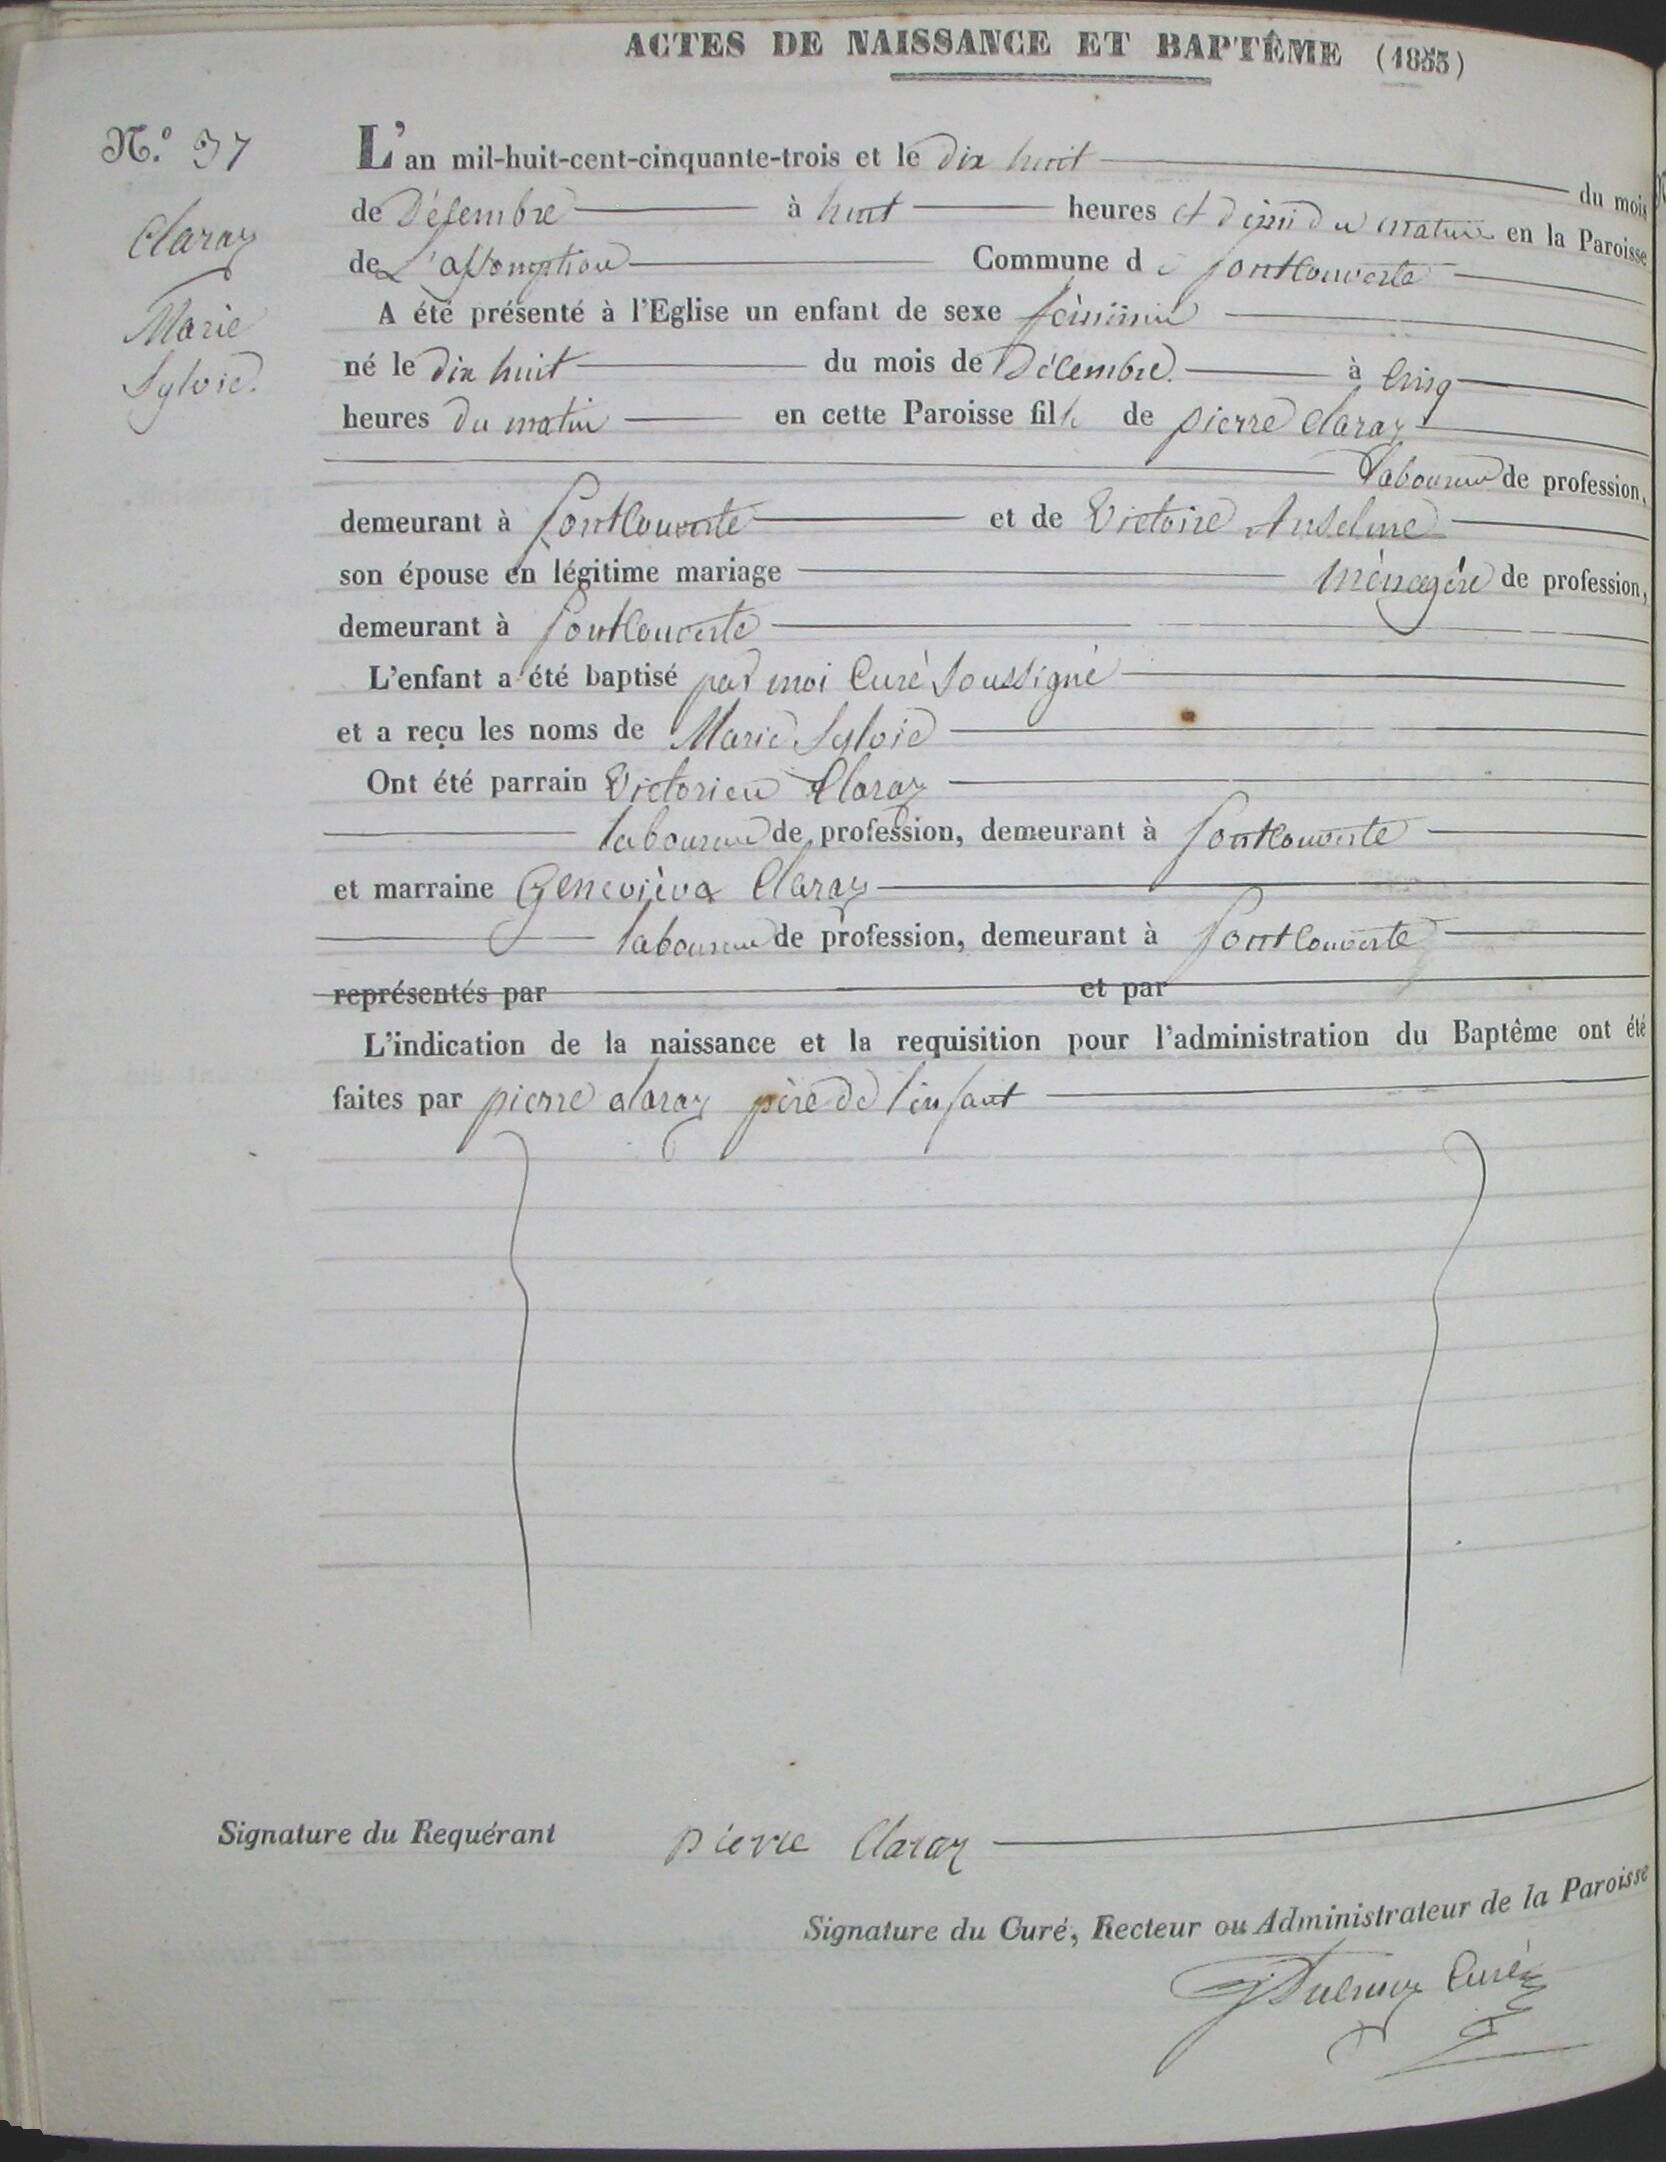 ACTES DE NAISSANCE ET BAPTÊME (1853)
N.º 37
Claraz
Marie
Sylvie.
L'an mil-huit-cent-cinquante-trois et le dix huit du mois
de Décembre à huit heures et demi du matin en la Paroisse
de L'assomption Commune de fontcouverte
A été présenté à l'Eglise un enfant de sexe féminin
né le dix huit du mois de Décembre. à Cinq
heures du matin en cette Paroisse fille de pierre Claraz
laboureur de profession,
demeurant à fontcouverte et de Victoire Anselme
son épouse en légitime mariage ménagére de profession,
demeurant à fontcouverte
L'enfant a été baptisé par moi Curé soussigné
et a reçu les noms de Marie Sylvie
Ont été parrain Victorien Claraz
laboureur de profession, demeurant à fontcouverte
et marraine Geneviève Claraz
laboureur de profession, demeurant à fontcouverte
représentés par et par
L'indication de la naissance et la requisition pour l'administration du Baptême ont été
faites par pierre claraz père de l'enfant
Signature du Requérant pierre Claraz
Signature du Curé, Recteur ou Administrateur de la Paroisse
Curé